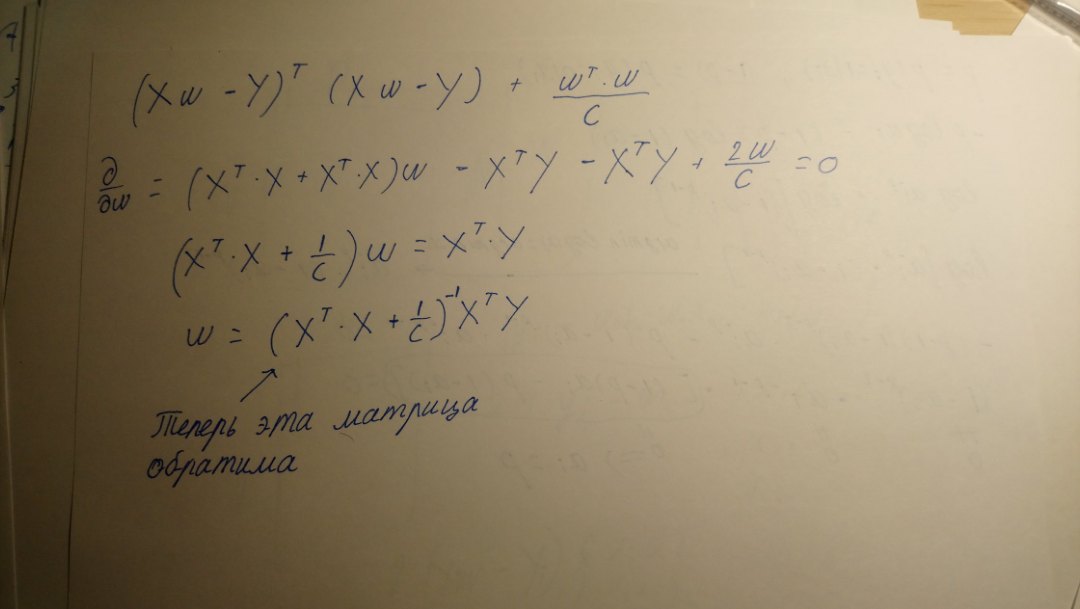 (Xw - Y)ᵀ (Xw - Y) + wᵀ·w/C
∂/∂w = (Xᵀ·X + Xᵀ·X)w - XᵀY - XᵀY + 2w/C = 0
(Xᵀ·X + 1/C)w = Xᵀ·Y
w = (Xᵀ·X + 1/C)⁻¹XᵀY
Теперь эта матрица
обратима